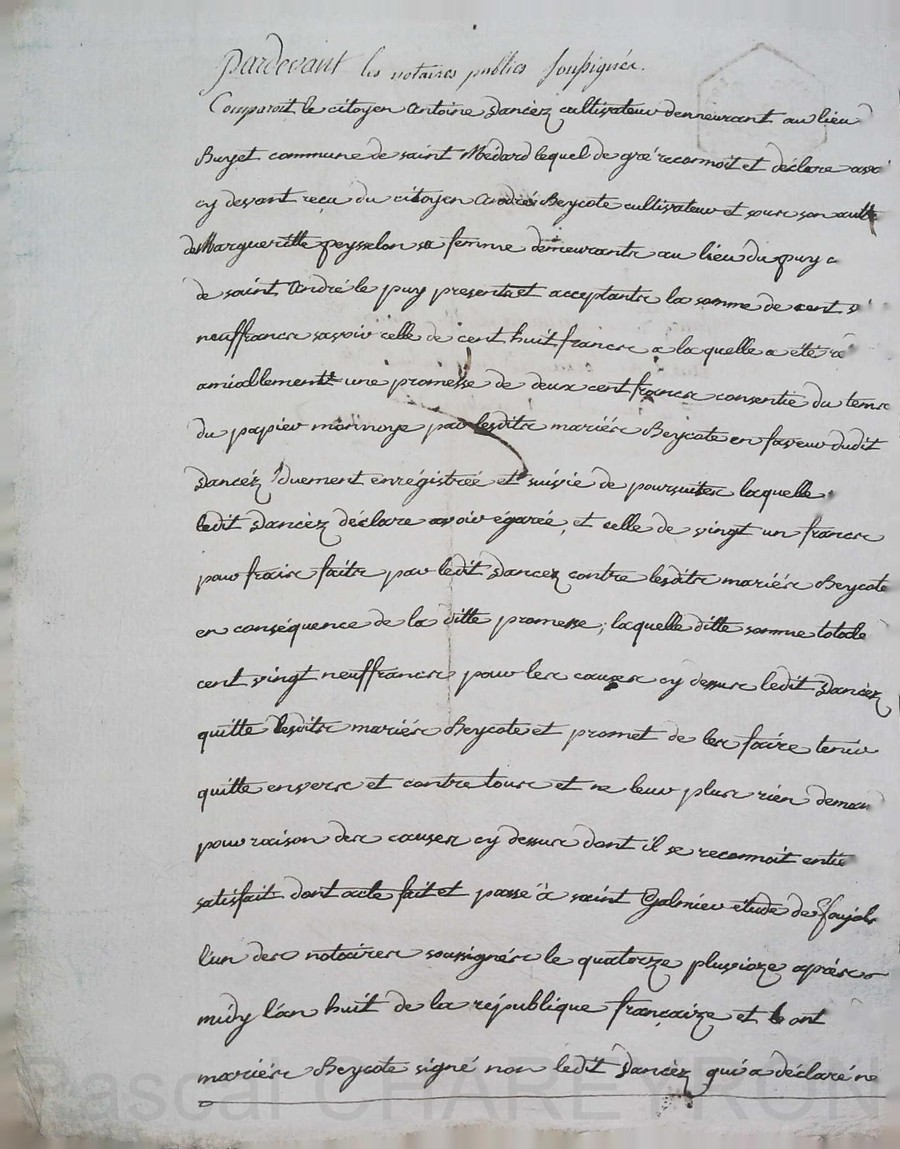 Pardevant les notaires publics soussignés.
Comparoit le citoyen Antoine Dancèz cultivateur demeurant au lieu
Buyet commune de saint Médard lequel de gré reconnoit et déclare avoi
cy devant reçu du citoyen André Beycote cultivateur et sous son autt
de Margueritte peysselon sa femme demeurants au lieu du puy c
de saint André le puy presents et acceptants la somme de cent vi
neuf francs savoir celle de cent huit francs a laquelle a été ré
amiablement une promesse de deux cent francs consentie du tems
du papier monnoye par lesdits mariés Beycote en faveur dudit
Dancéz duement enrégistrée et suivie de poursuites laquelle
ledit Dancèz déclare avoir égarée, et celle de vingt un francs
pour frais faits par ledit Dancez contre lesdits mariés Beycote
en conséquence de la ditte promesse; laquelle ditte somme totale
cent vingt neuf francs pour les causes cy dessus ledit Dancèz
quitte lesdits mariés Beycote et promet de les faire tenir
quitte envers et contre tous et ne leur plus rien deman
pour raison des causes cy dessus dont il se reconnoit entie
satisfait dont acte fait et passé à saint Galmier étude de
l'un des notaires soussignés le quatorze pluvioze après
midy l'an huit de la république françaize et ont
mariés Beycote signé non ledit Dancèz qui a déclaré ne
Pascal CHAREYRON